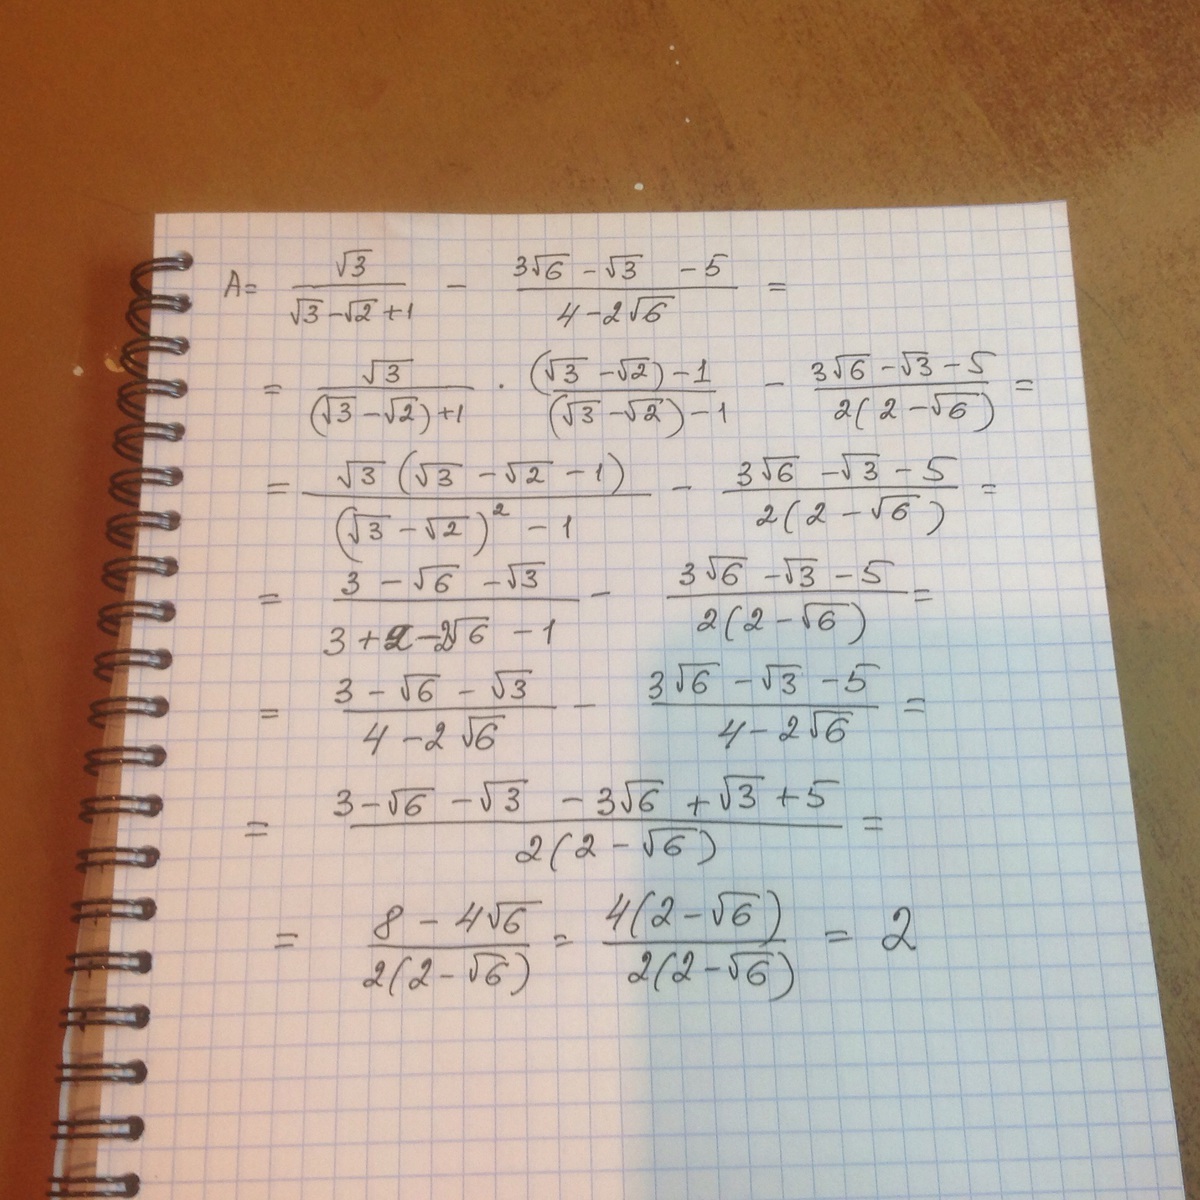 A = √3/(√3 - √2 + 1) - (3√6 - √3 - 5)/(4 - 2√6) =
= √3/((√3 - √2) + 1) · ((√3 - √2) - 1)/((√3 - √2) - 1) - (3√6 - √3 - 5)/(2(2 - √6)) =
= √3(√3 - √2 - 1)/((√3 - √2)² - 1) - (3√6 - √3 - 5)/(2(2 - √6)) =
= (3 - √6 - √3)/(3 + 2 - 2√6 - 1) - (3√6 - √3 - 5)/(2(2 - √6)) =
= (3 - √6 - √3)/(4 - 2√6) - (3√6 - √3 - 5)/(4 - 2√6) =
= (3 - √6 - √3 - 3√6 + √3 + 5)/(2(2 - √6)) =
= (8 - 4√6)/(2(2 - √6)) = 4(2 - √6)/(2(2 - √6)) = 2